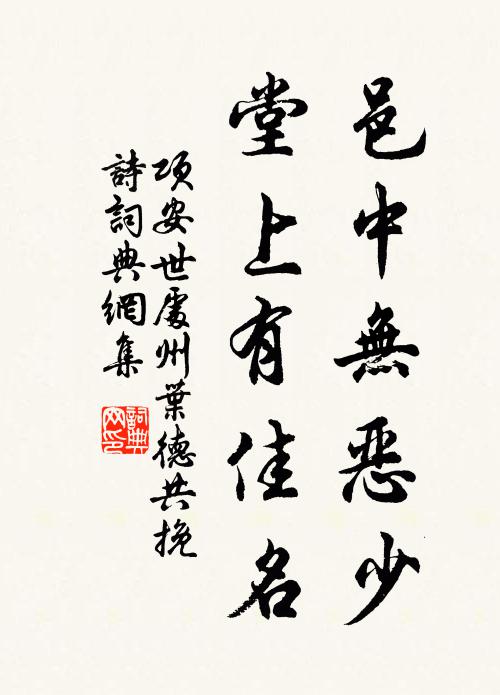 邑中無惡少
堂上有佳名
項安世處州葉德共挽
詩詞典網集
詞典网印